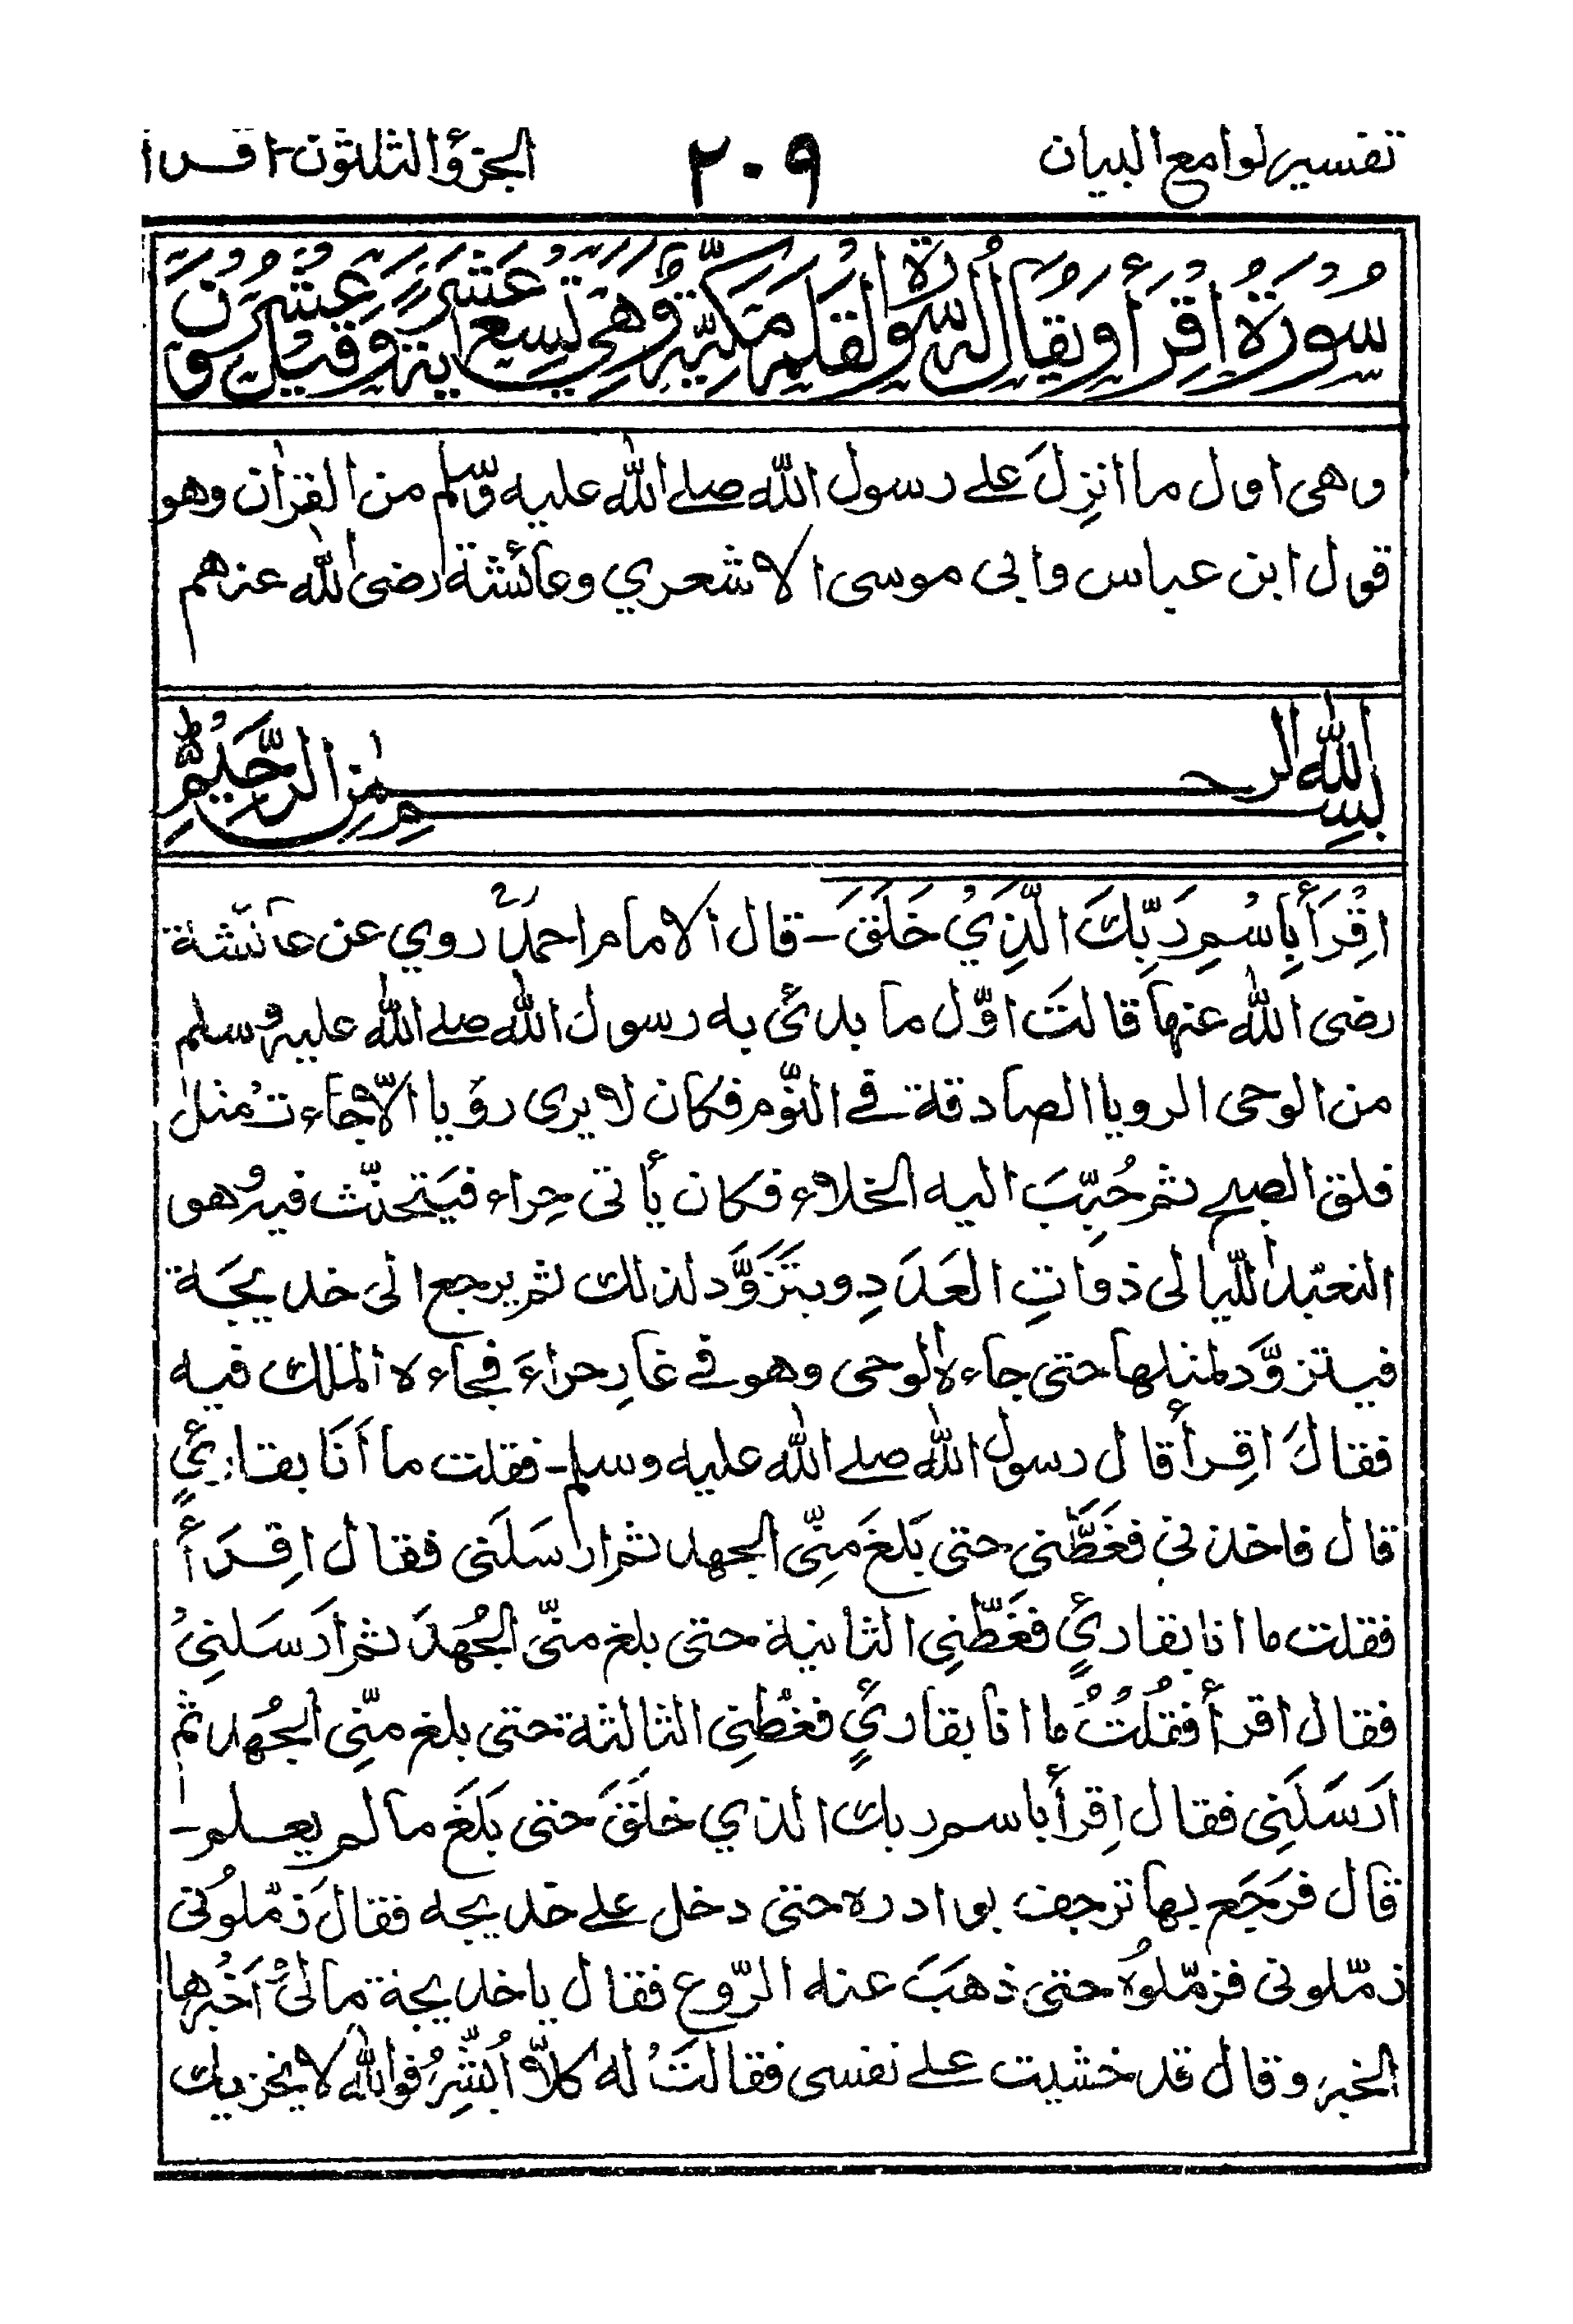 تفسير لوامع البيان ٢٠٩ الجزؤ الثلثون - اقرا
سُورَةُ اقْرَأْ ويُقَالُ لَهُ سُورَةُ القَلَمِ مَكِّيَّةٌ وَهِيَ تِسْعَ عَشَرَةَ ايَةً وَقِيلَ عِشْرُونَ
وهى اول ما انزِلَ على رسول الله صلى الله عليه وسّلم من القرٰان وهو
قول ابن عباس وابى موسى الاشعري وعائشة رضى الله عنهم
بسم الله الرحمٰن الرَّحِيْمِ
اقْرَأْ بِاسْمِ رَبِّكَ الَّذِيْ خَلَقَ - قال الامام احمدؒ روي عن عائشة
رضى الله عنها قالتَ اوّل ما بدئ به رسول الله صلى الله عليه وسلم
من الوحى الرويا الصادقة فى النّوم فكان لا يرى رؤيا الاّ جاءت مثل
فلق الصبح ثم حُبِّبَ اليه الخلاء فكان يأتى حِراء فيَتحنّث فيه وهو
التعبّد اللّيالى ذواتِ العَدَدِ ويتَزَوَّد لذلك ثم يرجع الى خديجَة
فيتزوَّد لمثلها حتى جاءه الوحى وهو فى غارِ حراءَ فجاءه الملك فيه
فقالَ اقِرأ قال رسول الله صلى الله عليه وسلم - فقلت ما اَنَا بقارئٍ
قال فاخذنى فغَطَّنى حتى بَلَغَ مِنِّى الجهد ثم ارسَلَنى فقال اقِرَأْ
فقلت ما انا بقارئٍ فغَطّنِى الثانية حتى بلغ منّى الجُهدَ ثم ارَسَلنِىْ
فقال اقرأ فقُلتُ ما انا بقارئٍ فغطّنِى الثالثة حتى بلغ منّىِ الجُهد ثم
ارَسَلَنِى فقال اِقرأ باسم ربك الذي خلَقَ حتى بَلَغَ ما لم يعلم -
قال فرَجَع بها ترجف بوادره حتى دخل على خديجه فقالَ زمّلوُنى
زمّلونى فزمّلوُه حتى ذهَبَ عنه الرّوع فقال يا خديجة مالىْ اَخبْرها
الخبر وقال قد خشيت على نفسى فقالتَ لهُ كلاَّ اُبْشِّرُ فوالله لا يخزيك